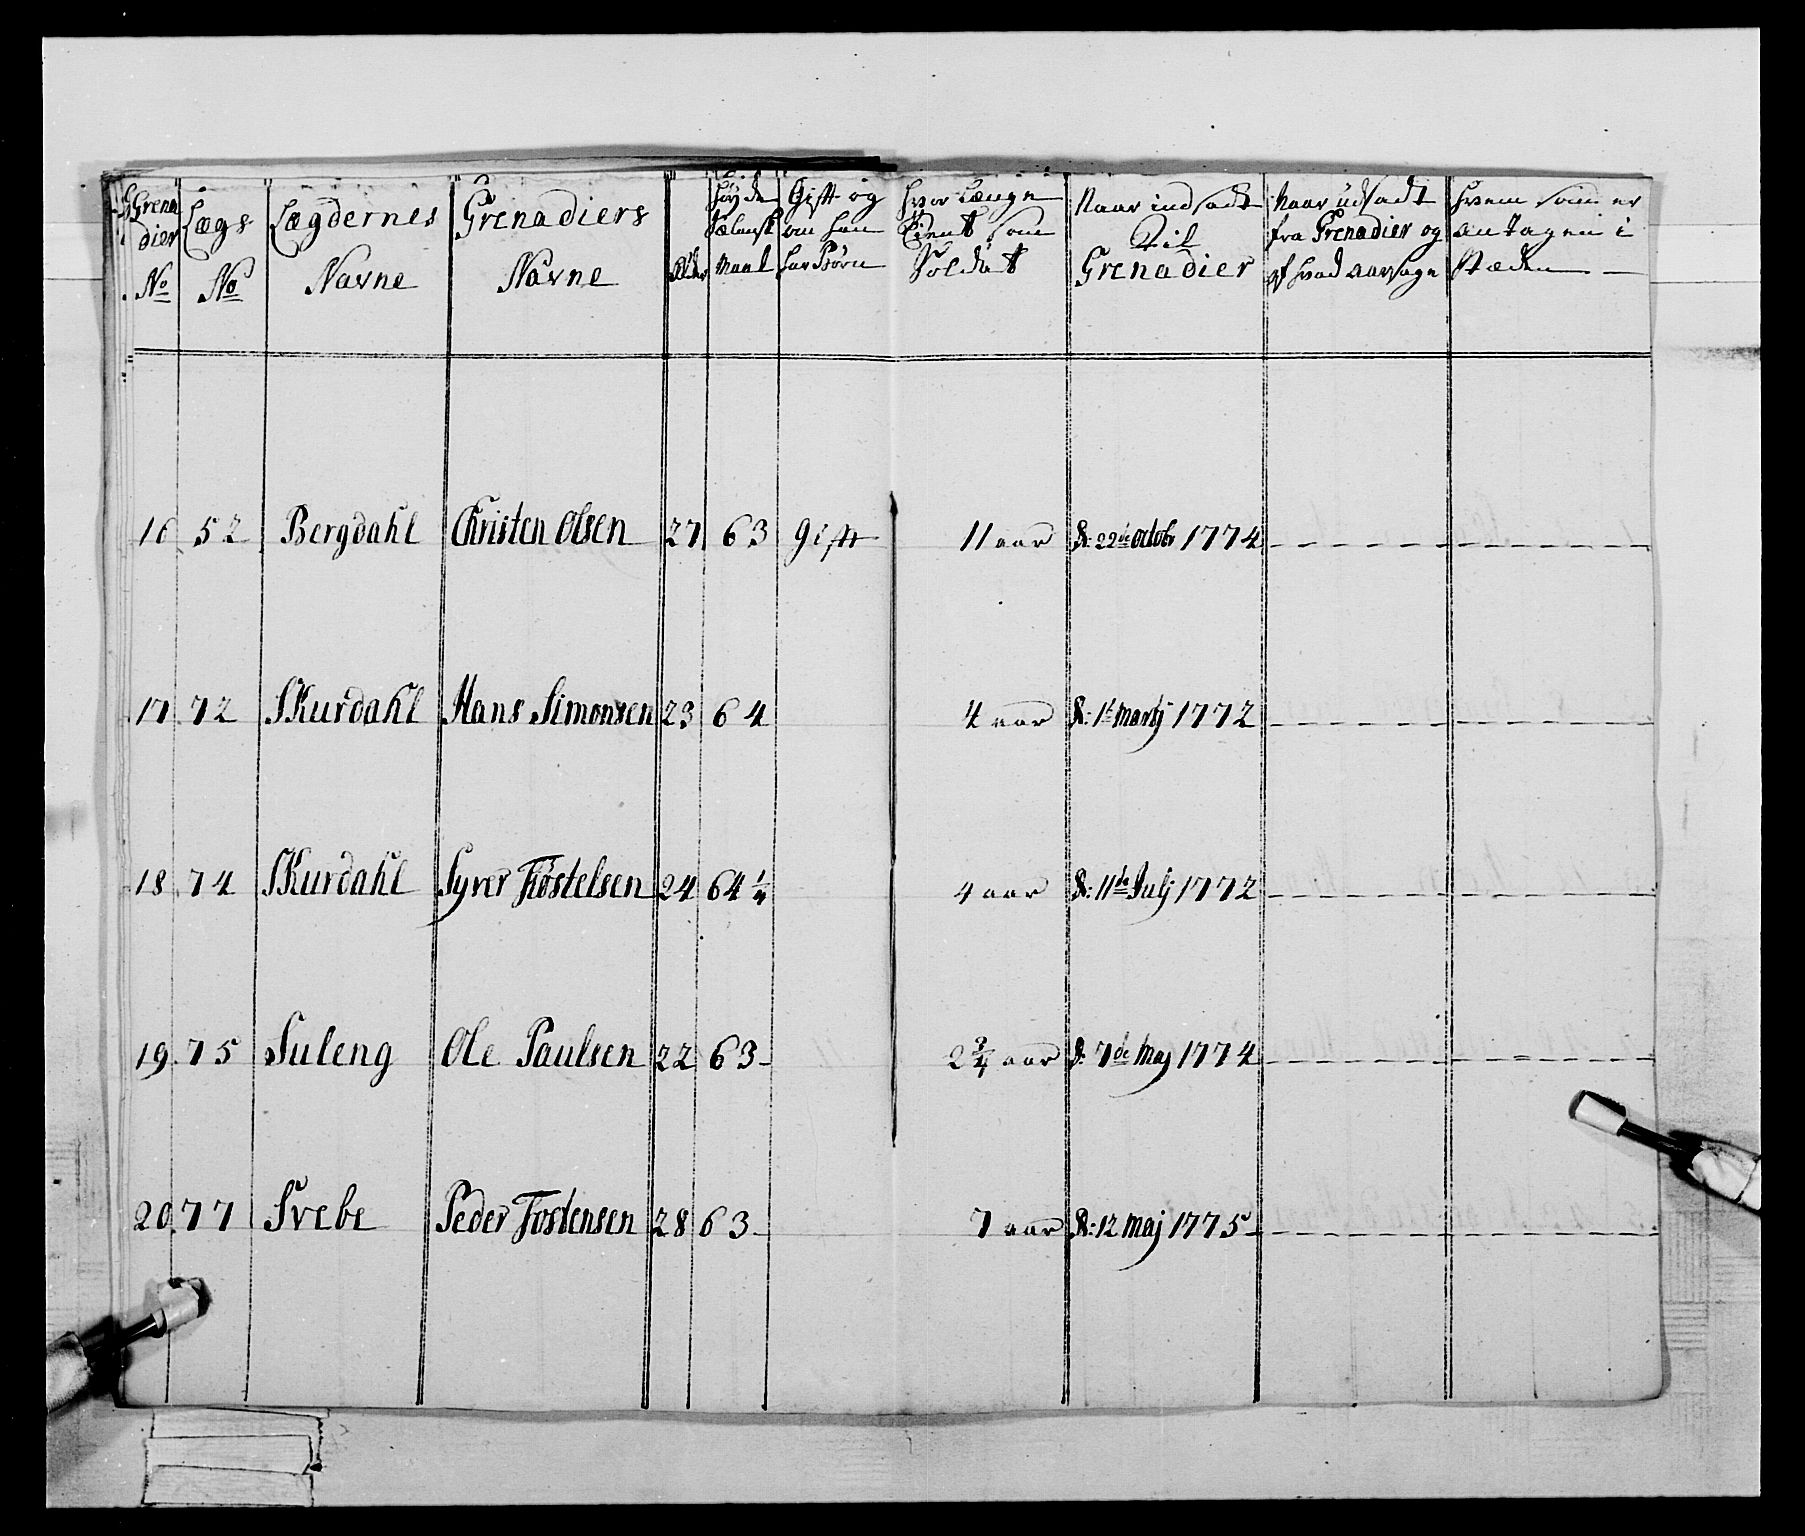 Grena
dier
No
Lægs
No
Lægdernes
Navne
Grenadiers
Navne
Alder
Høyde
Sælansk
Maal
Gift og
om han
har Børn
Hvor Længe
Tient som
Soldat
Naar indsadt
til
Grenadier
Naar udsadt
fra Grenadier og
af hvad aarsage
Hvem som er
antagen i
Stæden
16 52 Bergdahl Christen Olsen 27 63 gift 11 aar d: 22de octobr 1774
17 72 Skurdahl Hans Simonsen 23 64 4 aar d: 1t martij 1772
18 74 Skurdahl Syver Tiøstelsen 24 64 1/4 4 aar d: 11te Julj 1772
19 75 Suleng Ole Paulsen 22 63 2 3/4 aar d: 7de Maj 1774
20 77 Svebe Peder Tostensen 28 63 7 aar d: 12 maj 1775